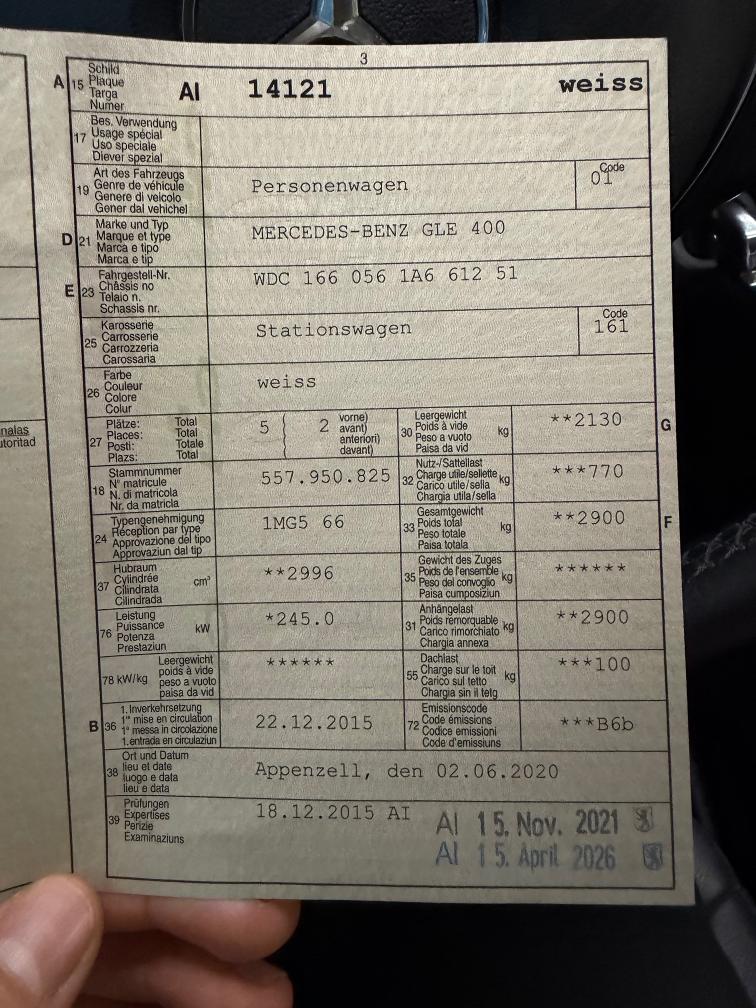 3
A 15 Schild
Plaque
Targa
Numer
AI 14121 weiss
17 Bes. Verwendung
Usage spécial
Uso speciale
Diever spezial
19 Art des Fahrzeugs
Genre de véhicule
Genere di veicolo
Gener dal vehichel
Personenwagen
Code
01
D 21 Marke und Typ
Marque et type
Marca e tipo
Marca e tip
MERCEDES-BENZ GLE 400
E 23 Fahrgestell-Nr.
Châssis no
Telaio n.
Schassis nr.
WDC 166 056 1A6 612 51
25 Karosserie
Carrosserie
Carrozzeria
Carossaria
Stationswagen
Code
161
26 Farbe
Couleur
Colore
Colur
weiss
27 Plätze: Total
Places: Total
Posti: Totale
Plazs: Total
5 2 vorne)
avant)
anteriori)
davant)
30 Leergewicht
Poids à vide
Peso a vuoto
Paisa da vid
kg
**2130
G
18 Stammnummer
N° matricule
N. di matricola
Nr. da matricla
557.950.825
32 Nutz-/Sattellast
Charge utile/sellette
Carico utile/sella
Chargia utila/sella
kg
***770
24 Typengenehmigung
Réception par type
Approvazione del tipo
Approvaziun dal tip
1MG5 66
33 Gesamtgewicht
Poids total
Peso totale
Paisa totala
kg
**2900
F
37 Hubraum
Cylindrée
Cilindrata
Cilindrada
cm³
**2996
35 Gewicht des Zuges
Poids de l'ensemble
Peso del convoglio
Paisa cumposiziun
kg
******
76 Leistung
Puissance
Potenza
Prestaziun
kW
*245.0
31 Anhängelast
Poids remorquable
Carico rimorchiato
Chargia annexa
kg
**2900
78 kW/kg
Leergewicht
poids à vide
peso a vuoto
paisa da vid
******
55 Dachlast
Charge sur le toit
Carico sul tetto
Chargia sin il tetg
kg
***100
B 36 1. Inverkehrsetzung
1re mise en circulation
1a messa in circolazione
1. entrada en circulaziun
22.12.2015
72 Emissionscode
Code émissions
Codice emissioni
Code d'emissiuns
***B6b
38 Ort und Datum
lieu et date
luogo e data
lieu e data
Appenzell, den 02.06.2020
39 Prüfungen
Expertises
Perizie
Examinaziuns
18.12.2015 AI
AI 15. Nov. 2021
AI 15. April 2026